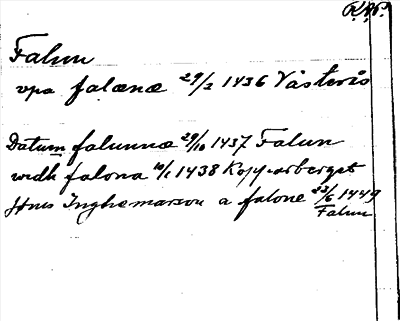 R.A.P.
Falun
vpa falænæ 29/2 1436 Västerås
Datum falunnæ 29/10 1437 Falun
widh falona 10/1 1438 Kopparberget
Jöns Inghemarson a falone 23/6 1449
Falun